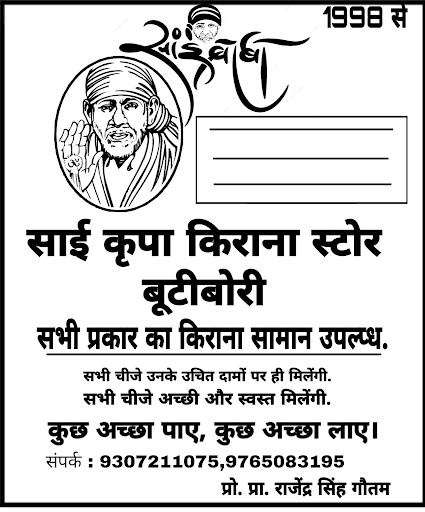 1998 से
साईंबाबा
साई कृपा किराना स्टोर
बूटीबोरी
सभी प्रकार का किराना सामान उपल्प्ध.
सभी चीजे उनके उचित दामों पर ही मिलेंगी.
सभी चीजे अच्छी और स्वस्त मिलेंगी.
कुछ अच्छा पाए, कुछ अच्छा लाए।
संपर्क : 9307211075,9765083195
प्रो. प्रा. राजेंद्र सिंह गौतम